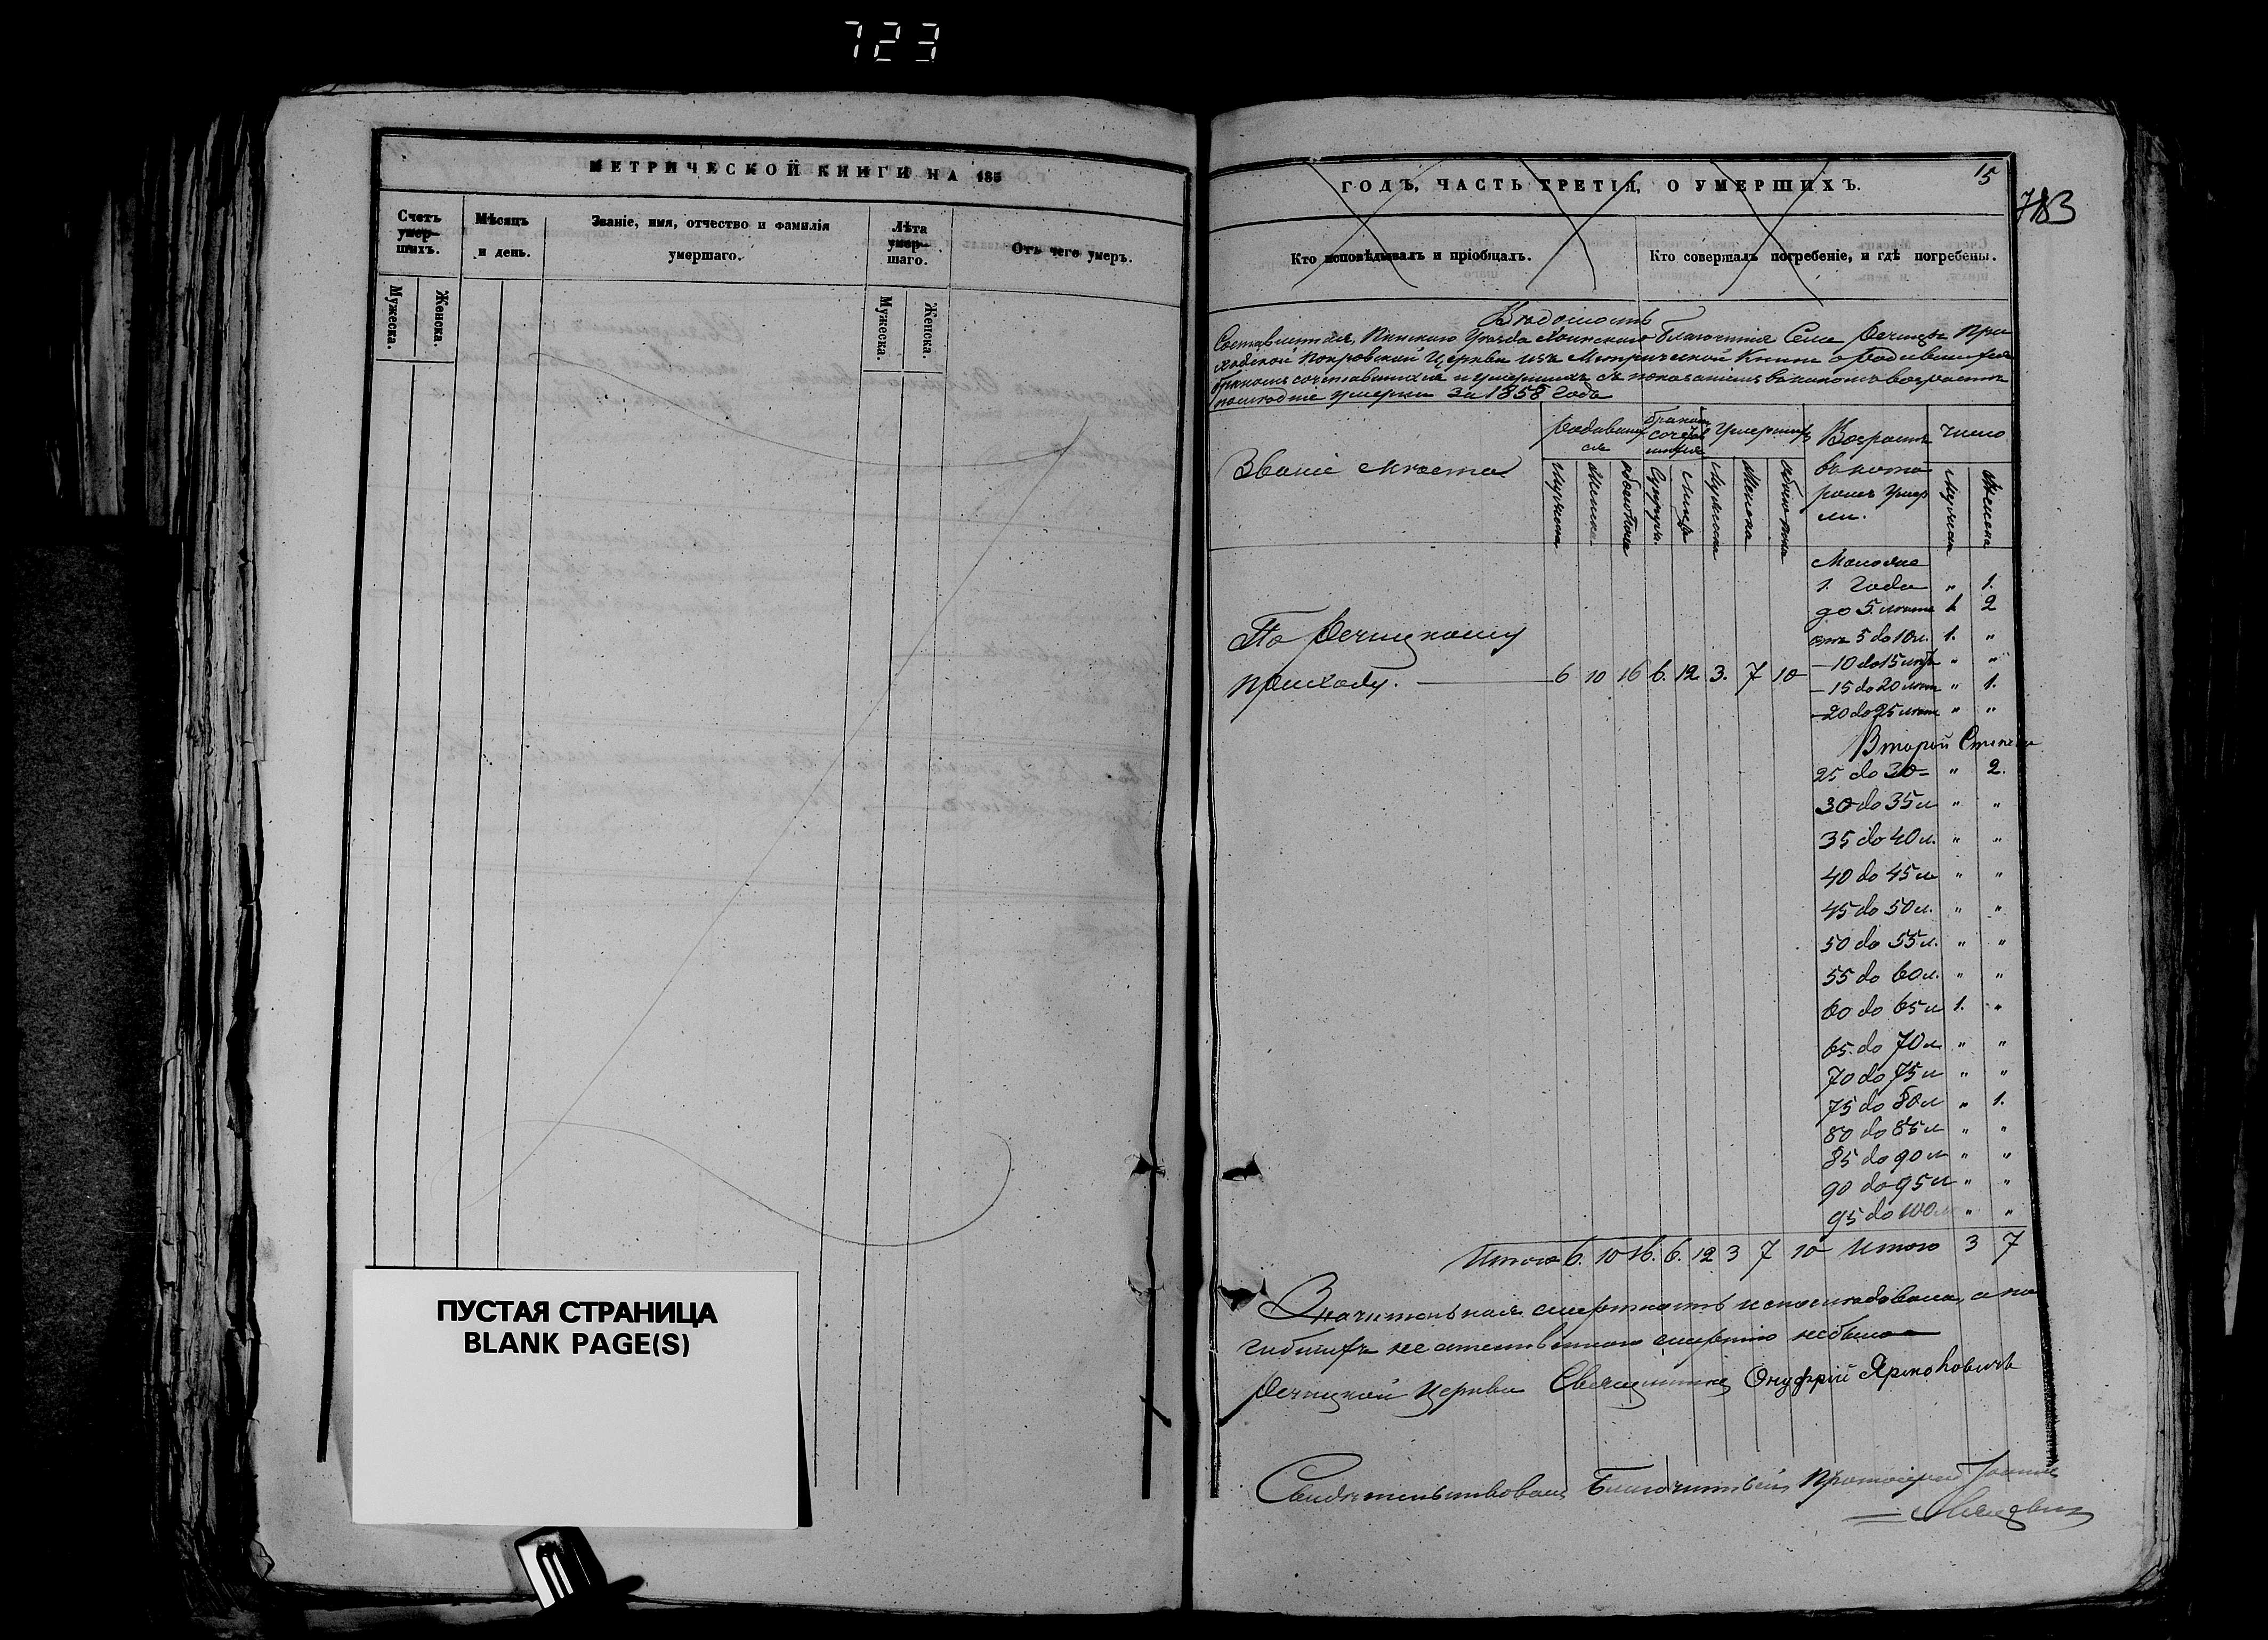 723
МЕТРИЧЕСКОЙ КНИГИ НА 185
Счетъ умер-шихъ.
Мѣсяцъ и день.
Званіе, имя, отчество и фамилія умершаго.
Лѣта умер-шаго.
Отъ чего умеръ.
Мужеска.
Женска.
Мужеска.
Женска.
ПУСТАЯ СТРАНИЦА
BLANK PAGE(S)
ГОДЪ, ЧАСТЬ ТРЕТІЯ, О УМЕРШИХЪ.
15
783
Кто исповѣдывалъ и пріобщалъ.
Кто совершалъ погребеніе, и гдѣ погребены.
Вѣдомость
Составленная, Пинскаго Уѣзда благочинія Села Речицы При
ходской Покровской Церкви изъ Метрической Книги о родившихся
бракомъ сочетавшихся и умершихъ съ показаніемъ въ какомъ возрастѣ
умерли за 1858 года
Званіе мѣста
Родившихся
бракомъ сочетавшихся
Умершихъ
Возрастъ въ кото
ромъ умер
ли.
число
Мужеска
Женска
обоего пола
Супруж.
Лицъ
Мужеска
Женска
обоего пола
Мужеска
Женска
По Речицкому
приходу. 6 10 16 6. 12 3. 7 10
Моложе
1. Года " 1.
до 5 лѣтъ 1 2
отъ 5 до 10 л. 1. "
— 10 до 15 лѣтъ " "
— 15 до 20 лѣтъ " 1.
— 20 до 25 лѣтъ " "
Второй Степени
25 до 30 " 2.
30 до 35 л " "
35 до 40 л. " "
40 до 45 л " "
45 до 50 л. " "
50 до 55 л. " "
55 до 60 л. " "
60 до 65 л 1. "
65 до 70 л " "
70 до 75 л " "
75 до 80 л " 1.
80 до 85 л " "
85 до 90 л " "
90 до 95 л " "
95 до 100 л " "
Итого 6. 10 16. 6. 12 3 7 10 Итого 3 7
Значительная смертность непослѣдовала, а по
гибшихъ неестественною смертію небыло
Речицкой Церкви Священникъ Онуфрій Ярмоловичъ
Свидѣтельствовалъ Благочинный Протоіерей Іоаннъ